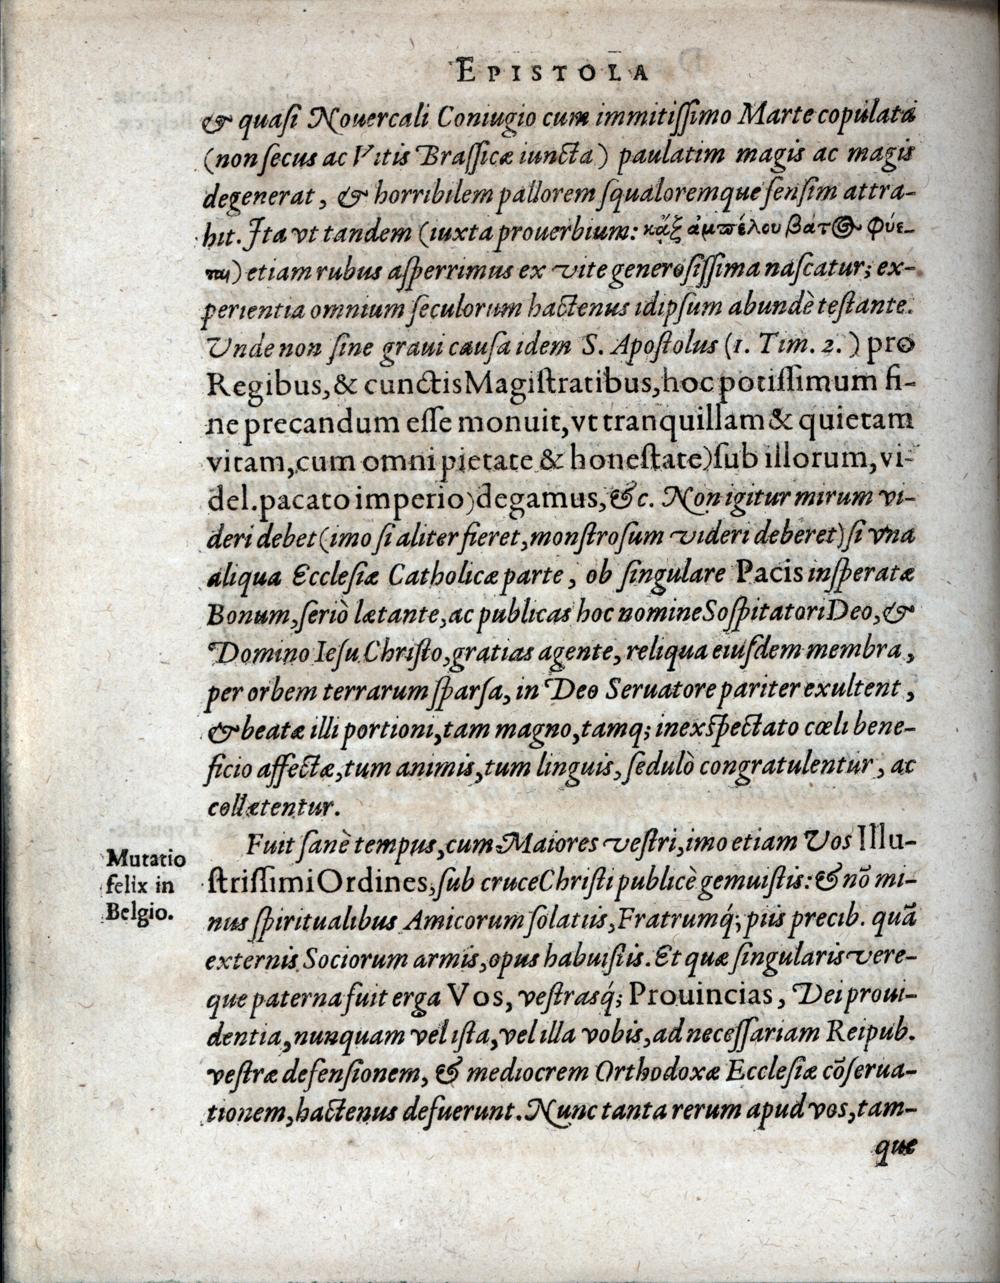 EPISTOLA
& quaſi Nouercali Coniugio cum immitiſſimo Marte copulata
(non ſecus ac Vitis Braſſicæ iuncta) paulatim magis ac magis
degenerat, & horribilem pallorem ſqualoremque ſenſim attra-
hit. Ita vt tandem (iuxta prouerbium: κᾂξ ἀμπέλου βάτος φύε-
ται) etiam rubus aſperrimus ex vite generoſiſſima naſcatur; ex-
perientia omnium ſeculorum hactenus idipſum abundè teſtante.
Vnde non ſine graui cauſa idem S. Apoſtolus (1. Tim. 2.) pro
Regibus, & cunctis Magiſtratibus, hoc potiſſimum fi-
ne precandum eſſe monuit, vt tranquillam & quietam
vitam, cum omni pietate & honeſtate) ſub illorum, vi-
del. pacato imperio) degamus, &c. Non igitur mirum vi-
deri debet (imo ſi aliter fieret, monſtroſum videri deberet) ſi vna
aliqua Eccleſiæ Catholicæ parte, ob ſingulare Pacis inſperatæ
Bonum, ſeriò lætante, ac publicas hoc nomine Soſpitatori Deo, &
Domino Ieſu Chriſto, gratias agente, reliqua eiuſdem membra,
per orbem terrarum ſparſa, in Deo Seruatore pariter exultent,
& beatæ illi portioni, tam magno, tamq; inexſpectato cœli bene-
ficio affectæ, tum animis, tum linguis, ſedulò congratulentur, ac
collætentur.
Fuit ſanè tempus, cum Maiores veſtri, imo etiam Vos Illu-
ſtriſſimi Ordines, ſub cruce Chriſti publicè gemuiſtis: & nõ mi-
nus ſpiritualibus Amicorum ſolatiis, Fratrumq́; piis precib. quã
externis Sociorum armis, opus habuiſtis. Et quæ ſingularis vere-
que paterna fuit erga Vos, veſtrasq́; Prouincias, Dei proui-
dentia, nunquam vel iſta, vel illa vobis, ad neceſſariam Reipub.
veſtræ defenſionem, & mediocrem Orthodoxæ Eccleſiæ cõſerua-
tionem, hactenus defuerunt. Nunc tanta rerum apud vos, tam-
que
Mutatio
felix in
Belgio.